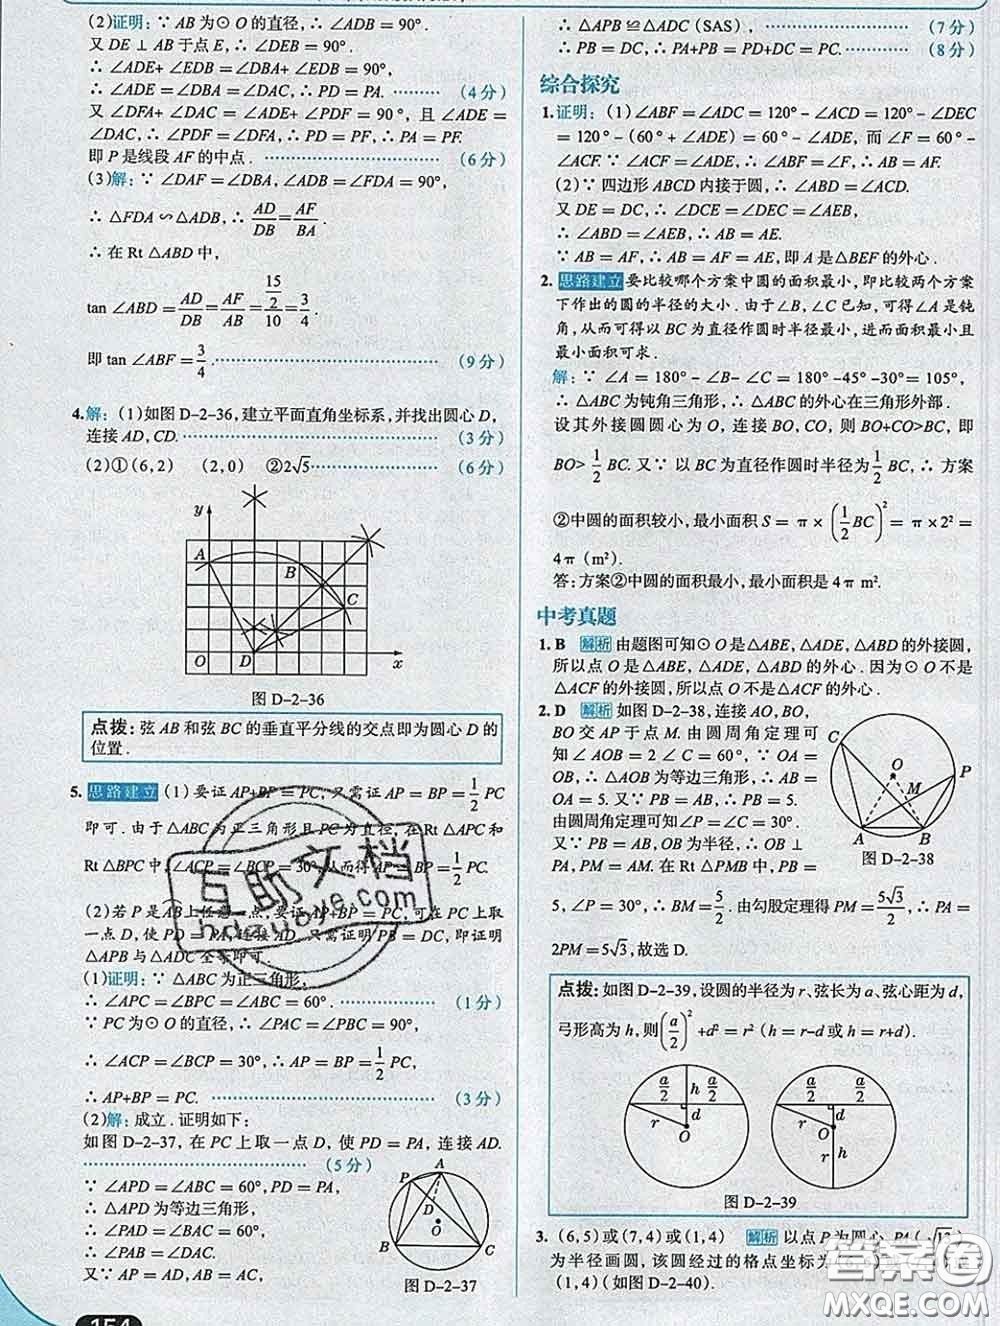 (2)证明: ∵ AB 为⊙ O 的直径, ∴ ∠ADB = 90°.
又 DE ⊥ AB 于点 E, ∴ ∠DEB = 90°.
∴ ∠ADE+ ∠EDB = ∠DBA+ ∠EDB = 90°,
∴ ∠ADE = ∠DBA = ∠DAC, ∴ PD = PA. ……… (4 分)
又 ∠DFA+ ∠DAC = ∠ADE+ ∠PDF = 90°, 且 ∠ADE =
∠DAC, ∴ ∠PDF = ∠DFA, ∴ PD = PF, ∴ PA = PF.
即 P 是线段 AF 的中点. ……… (6 分)
(3)解: ∵ ∠DAF = ∠DBA, ∠ADB = ∠FDA = 90°,
∴ △FDA ∽ △ADB, ∴ AD/DB = AF/BA.
∴ 在 Rt △ABD 中,
tan ∠ABD = AD/DB = AF/AB = (15/2)/10 = 3/4
即 tan ∠ABF = 3/4. ……… (9 分)
4.解: (1)如图 D-2-36, 建立平面直角坐标系, 并找出圆心 D,
连接 AD, CD. ……… (3 分)
(2)①(6,2) (2,0) ②2√5 ……… (6 分)
y
A
B
C
O
D
x
图 D-2-36
点拨: 弦 AB 和弦 BC 的垂直平分线的交点即为圆心 D 的
位置.
5. 思路建立 (1)要证 AP+BP = PC, 只需证 AP = BP = 1/2 PC
即可. 由于△ABC 为正三角形且 PC 为直径, 在 Rt △APC 和
Rt △BPC 中, ∠ACP = ∠BCP = 30°, 从而得 AP = BP = 1/2 PC.
(2)若 P 是 AB 上任意一点, 要证 AP+BP = PC, 可在 PC 上取
一点 D, 使 PD = PA, 连接 AD. 只需证明 PB = DC, 即证明
△APB 与△ADC 全等即可.
(1)证明: ∵ △ABC 为正三角形,
∴ ∠APC = ∠BPC = ∠ABC = 60°. ……… (1 分)
∵ PC 为⊙ O 的直径, ∴ ∠PAC = ∠PBC = 90°,
∴ ∠ACP = ∠BCP = 30°, ∴ AP = BP = 1/2 PC,
∴ AP+BP = PC. ……… (3 分)
(2)解: 成立. 证明如下:
如图 D-2-37, 在 PC 上取一点 D, 使 PD = PA, 连接 AD.
……… (5 分)
∵ ∠APD = ∠ABC = 60°, PD = PA,
∴ △APD 为等边三角形,
∴ ∠PAD = ∠BAC = 60°,
∴ ∠PAB = ∠DAC.
又∵ AP = AD, AB = AC,
A
P
D
O
B
C
图 D-2-37
154
∴ △APB ≌ △ADC (SAS), ……… (7 分)
∴ PB = DC, ∴ PA+PB = PD+DC = PC. ……… (8 分)
综合探究
1.证明: (1)∠ABF = ∠ADC = 120° - ∠ACD = 120° - ∠DEC
= 120° - (60° + ∠ADE) = 60° - ∠ADE, 而 ∠F = 60° -
∠ACF. ∵ ∠ACF = ∠ADE, ∴ ∠ABF = ∠F, ∴ AB = AF.
(2)∵ 四边形 ABCD 内接于圆, ∴ ∠ABD = ∠ACD.
又 DE = DC, ∴ ∠DCE = ∠DEC = ∠AEB,
∴ ∠ABD = ∠AEB, ∴ AB = AE.
∵ AB = AF, ∴ AB = AF = AE, 即 A 是△BEF 的外心.
2. 思路建立 要比较哪个方案中圆的面积最小, 即比较两个方案
下作出的圆的半径的大小. 由于∠B, ∠C 已知, 可得∠A 是钝
角, 从而可得以 BC 为直径作圆时半径最小, 进而面积最小且
最小面积可求.
解: ∵ ∠A = 180° - ∠B - ∠C = 180° -45° -30° = 105°,
∴ △ABC 为钝角三角形, ∴ △ABC 的外心在三角形外部.
设其外接圆圆心为 O, 连接 BO, CO, 则 BO+CO>BC, 即
BO> 1/2 BC. 又∵ 以 BC 为直径作圆时半径为 1/2 BC, ∴ 方案
②中圆的面积较小, 最小面积 S = π × (1/2 BC)² = π × 2² =
4π (m²).
答: 方案②中圆的面积最小, 最小面积是 4π m².
中考真题
1. B 解析 由题图可知⊙ O 是△ABE, △ADE, △ABD 的外接圆,
所以点 O 是△ABE, △ADE, △ABD 的外心. 因为⊙ O 不是
△ACF 的外接圆, 所以点 O 不是△ACF 的外心.
2. D 解析 如图 D-2-38, 连接 AO, BO,
BO 交 AP 于点 M. 由圆周角定理可
知∠AOB = 2∠C = 60°. ∵ OA =
OB, ∴ △AOB 为等边三角形, ∴ AB =
OA = 5. 又∵ PB = AB, ∴ PB = 5.
由圆周角定理可知∠P = ∠C = 30°.
∵ PB = AB, OB 为半径, ∴ OB ⊥
PA, PM = AM. 在 Rt △PMB 中, PB =
5, ∠P = 30°, ∴ BM = 5/2. 由勾股定理得 PM = 5√3/2, ∴ PA =
2PM = 5√3, 故选 D.
C
O
P
M
A
B
图 D-2-38
点拨: 如图 D-2-39, 设圆的半径为 r、弦长为 a、弦心距为 d,
弓形高为 h, 则(a/2)² +d² = r² (h = r-d 或 h = r+d).
a/2 h a/2
r d
O
a/2 a/2
d
r O
r h
图 D-2-39
3. (6,5)或(7,4)或(1,4) 解析 以点 P 为圆心, PA(√13)
为半径画圆, 该圆经过的格点坐标为
(1,4)(如图 D-2-40).
互助文档
hdzuoye.com
答案圈
MXQE.COM